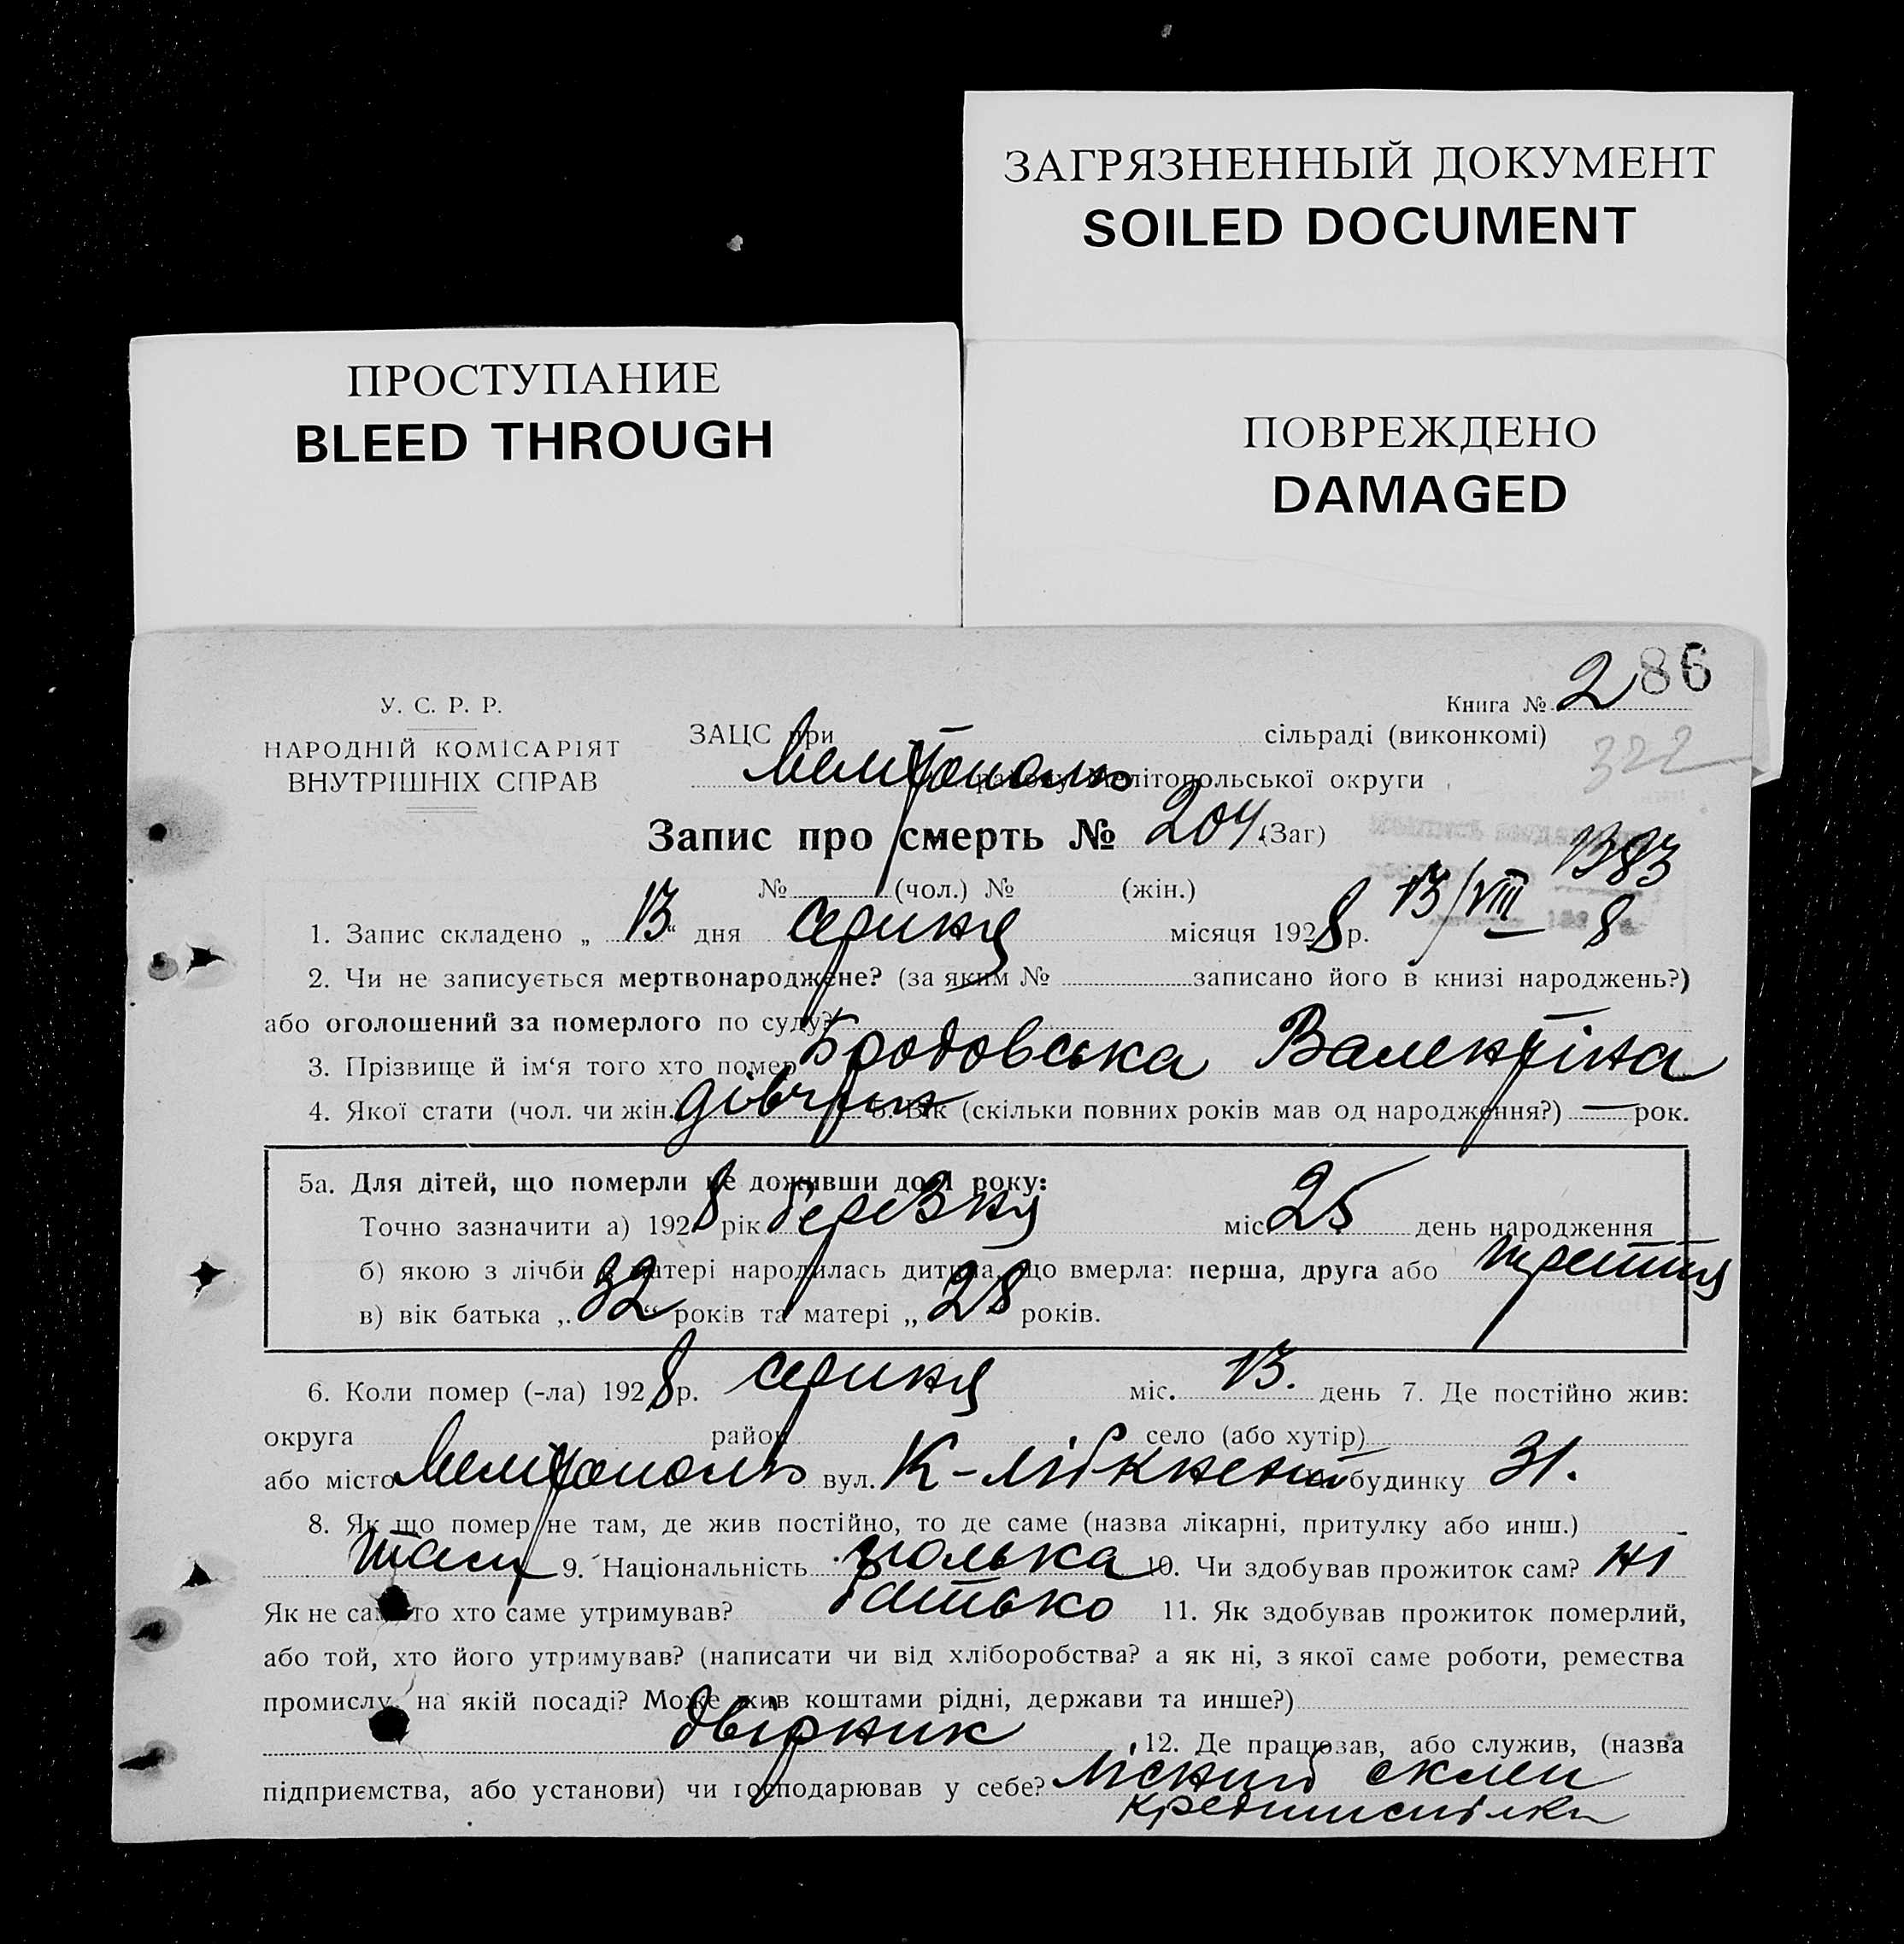 ЗАГРЯЗНЕННЫЙ ДОКУМЕНТ
SOILED DOCUMENT
ПРОСТУПАНИЕ
BLEED THROUGH
ПОВРЕЖДЕНО
DAMAGED
286
У. С. Р. Р.
НАРОДНІЙ КОМІСАРІЯТ
ВНУТРІШНІХ СПРАВ
Книга № 2
ЗАЦС при сільраді (виконкомі)
322
району Мелітопольської округи
Запис про смерть № 204 (Заг)
1383
№ (чол.) № (жін.)
13/VIII 8
1. Запис складено „ 13 “ дня серпня місяця 1928 р.
2. Чи не записується мертвонароджене? (за яким № записано його в книзі народжень?)
або оголошений за померлого по суду?
3. Прізвище й ім‘я того хто помер Бродовська Валентіна
4. Якої стати (чол. чи жін.) дівчина 5. Вік (скільки повних років мав од народження?) — рок.
5а. Для дітей, що померли не доживши до 1 року:
Точно зазначити а) 1928 рік березня міс 25 день народження
б) якою з лічби у матері народилась дитина, що вмерла: перша, друга або третття
в) вік батька „ 32 “ років та матері „ 28 років.
6. Коли помер (-ла) 1928 р. серпня міс. 13. день 7. Де постійно жив:
округа район село (або хутір)
або місто Мелітополь вул. К-Лібкнехта будинку 31.
8. Як що помер не там, де жив постійно, то де саме (назва лікарні, притулку або инш.)
там 9. Національність полька 10. Чи здобував прожиток сам? ні
Як не сам то хто саме утримував? батько 11. Як здобував прожиток померлий,
або той, хто його утримував? (написати чи від хліборобства? а як ні, з якої саме роботи, ремества
промислу, на якій посаді? Може жив коштами рідні, держави та инше?)
двірник 12. Де працював, або служив, (назва
підприємства, або установи) чи господарював у себе? Лісний склеп
кредитспілки